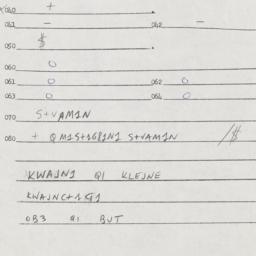 060 +
061 - 062 -
050 $ .
060 0
061 0 062 0
063 0 064 0
070 S+VAM1N
080 + QM1S+16P1N1 S+VAM1N /$
KWAJN1 Q1 KLEJNE
KWAJNC+1 Q1
OB3 Q1 BUT